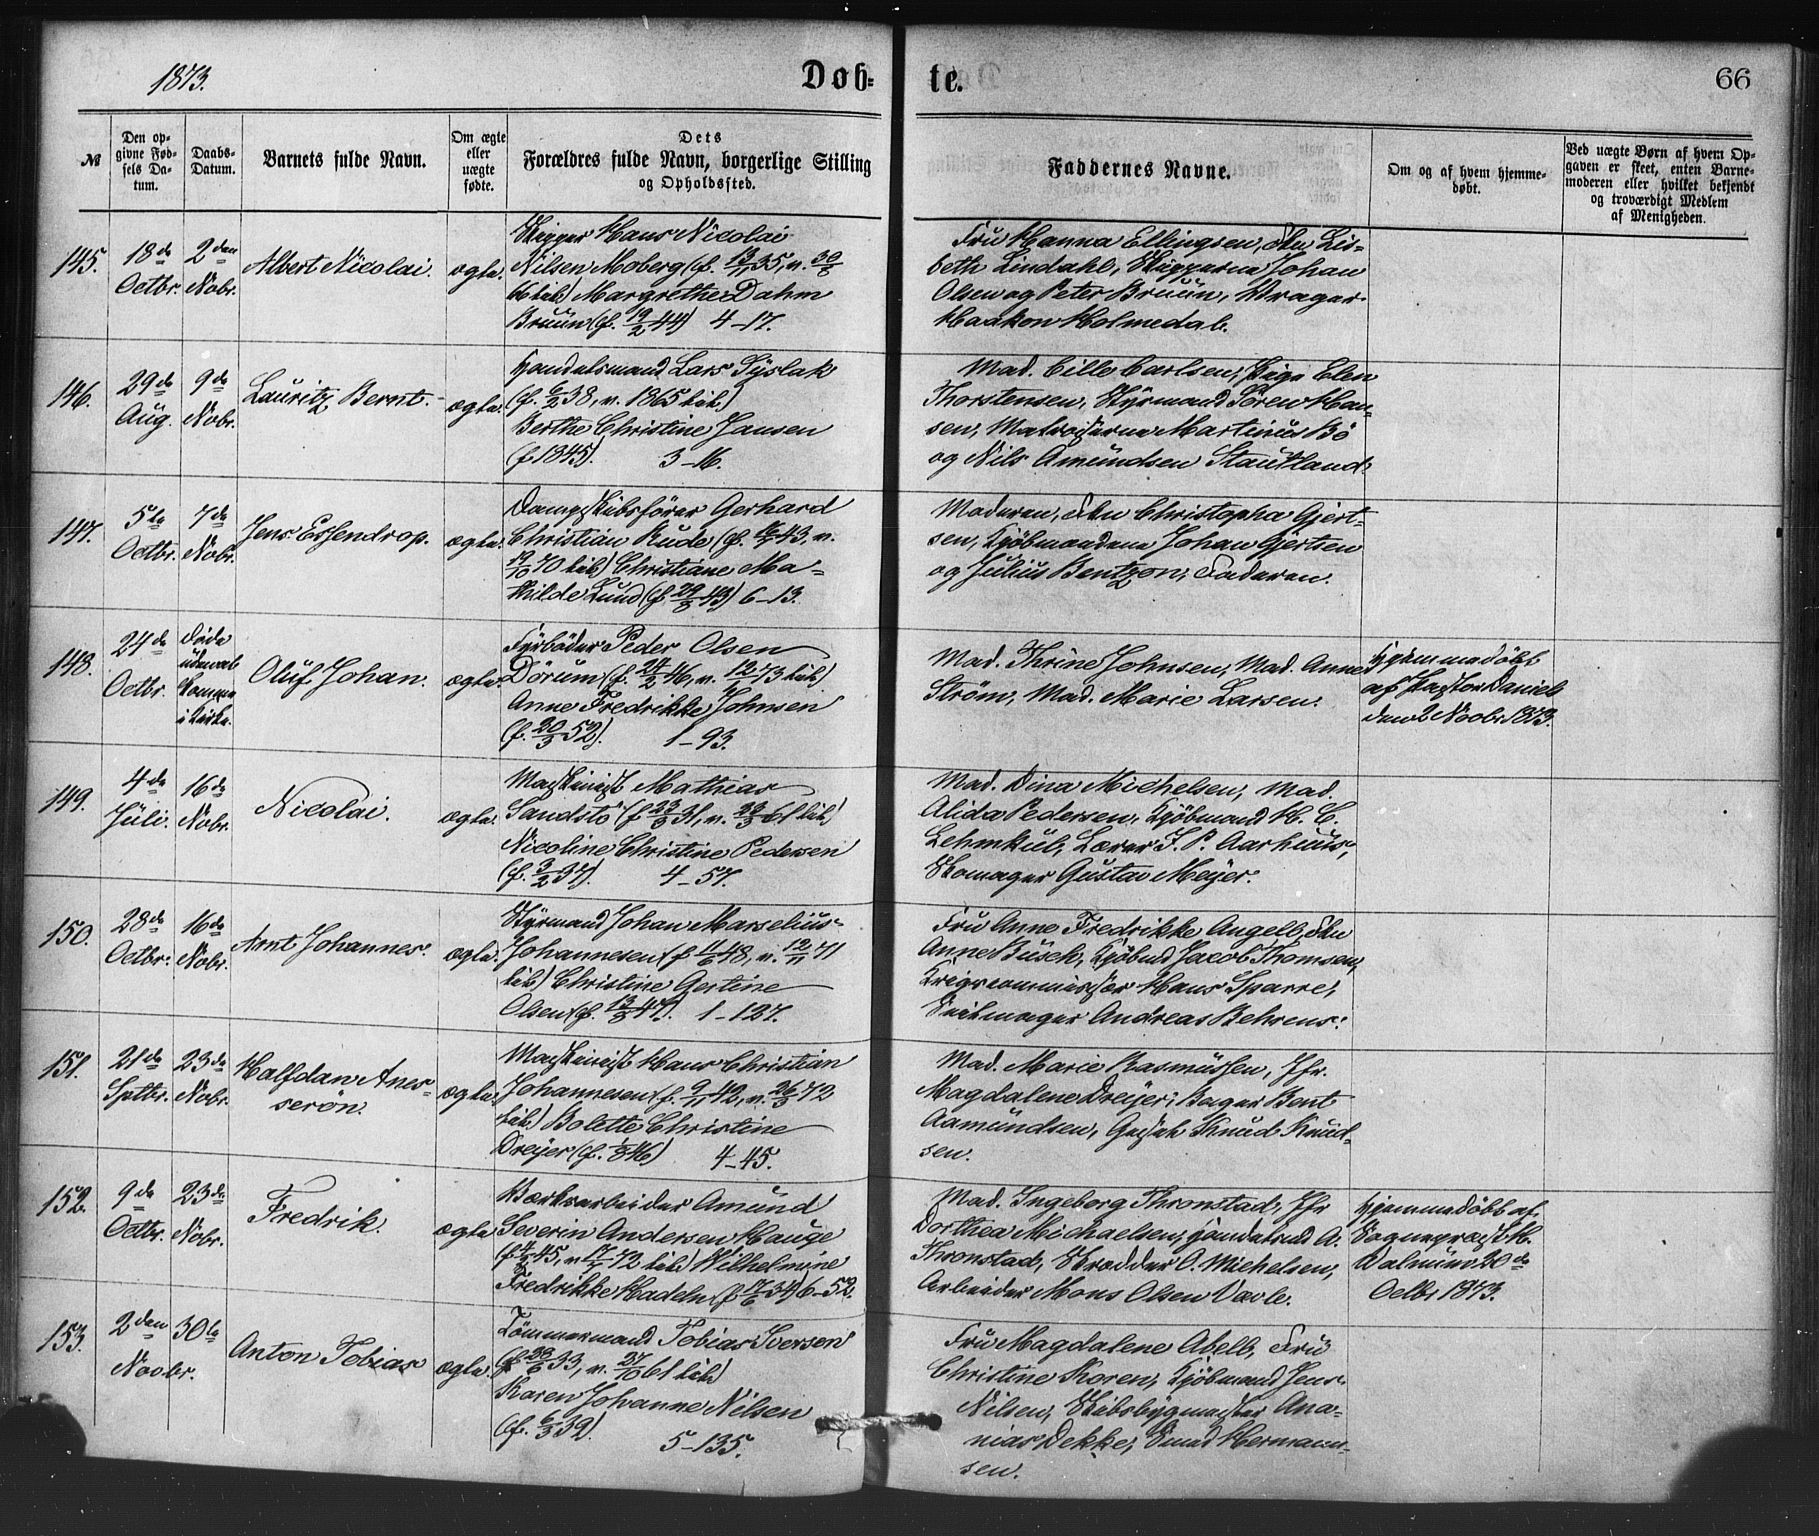 1873.
Døb-
te.
66
№
Den op-
givne Fød-
sels Da-
tum.
Daabs-
Datum.
Barnets fulde Navn.
Om ægte
eller
uægte
fødte.
Dets
Forældres fulde Navn, borgerlige Stilling
og Opholdssted.
Faddernes Navne.
Om og af hvem hjemme-
døbt.
Ved uægte Børn af hvem Op-
gaven er skeet, enten Barne-
moderen eller hvilket bekjendt
og troværdigt Medlem
af Menigheden.
145.
18de
Octbr.
2den
Nobr.
Albert Nicolai.
ægte.
Skipper Hans Nicolai
Nilsen Moberg (f. 13/11 35, v. 30/8
66 kib) Margrethe Dahm
Bruün (f. 19/2 44) 4-17.
Fru Hanna Ellingsen, Lis-
beth Lindahl, Skipperne Johan
Olsen og Peter Bruün, Drager
Haakon Holmedal.
146.
29de
Aug.
9de
Nobr.
Lauritz Bernt.
ægte.
Handelsmand Lars Tyslak
(f. 6/2 38, v. 1865 kib)
Berthe Christine Jansen
(f 1845). 3-16.
Mad. Cille Carlsen, Pige Elen
Thorstensen, Styrmand Sören Han-
sen, Matroserne Martinus Bö
og Nils Amundsen Stautland.
147.
5te
Octbr.
7de
Nobr.
Jens Essendrop.
ægte.
Dampskibsförer Gerhard
Christian Rude (f. 43, v.
19/10 70 kib) Christiane Ma-
thilde Lund (f. 29/8 43) 6-13.
Moderen, Christopha Gjert-
sen, Kjöbmændene Johan Gjertsen
og Julius Bentzon, Faderen.
148.
24de
Octbr.
döde
uden at
komme
i Kirke.
Oluf Johan.
ægte.
Fyrböder Peder Olsen
Dörum (f. 24/2 46, v. 12/1 73 kib)
Anne Fredrikke Johnsen
(f. 20/3 52). 1-93.
Mad. Thrine Johnsen, Mad. Anne
Ström, Mad. Marie Larsen.
Hjemmedöbt
af Pastor Daniel
den 2 Novbr 1873.
149.
4de
Juli.
16de
Nobr.
Nicolai.
ægte.
Maskinist Mathias
Sandstö (f 23/3 31, v. 61 kib)
Nicoline Christine Pedersen
(f. 3/2 37). 4-57.
Mad. Dina Michelsen, Mad.
Alida Pedersen, Kjöbmand H. C.
Lehmkul, Lærer J. P. Aarhuus,
Skomager Gustav Meyer.
150.
28de
Octbr.
16de
Nobr.
Arnt Johannes.
ægte.
Styrmand Johan Marselius
Johannesen (f 11/6 48, v. 12/11 71
kib) Christine Gertine
Olsen (f. 13/3 47). 1-127.
Fru Anne Fredrikke Angell,
Anne Büsch, Kjöbmd Jacob Thomsen,
Krigscommissær Hans Sparre,
Seilmager Andreas Behrens.
151.
21de
Septbr.
23de
Nobr.
Halfdan Anes-
serön.
ægte.
Maskinist Hans Christian
Johannesen (f. 9/11 42, v. 26/3 72
kib) Bolette Christine
Dreyer (f. 46) 4-45.
Mad. Marie Rasmussen, Jfr.
Magdalene Dreyer, Bager Bent
Aamundsen, Knud Knud-
sen.
152.
9de
Octbr.
23de
Nobr.
Fredrik.
ægte
Værksarbeider Amund
Severin Andersen Hauge
(f. 45, v. 72 kib) Wilhelmine
Fredrikke Hadeln (f 17/6 34) 6-52.
Mad. Ingeborg Thronstad, Jfr
Dorthea Michaelsen, Handelsmd A.
Thronstad, Skrædder O. Michelsen,
Arbeider Mons Olsen Davle.
Hjemmedöbt af
Sognepræst H.
Walnum 20de
Octbr 1873.
153.
2den
Novbr.
30te
Anton Tobias
ægte.
Tömmermand Tobias Iversen
(f 33, v. 27/10 61 kib)
Karen Johanne Nilsen
(f. 6/3 39). 5-135.
Fru Magdalene Abell, Fru
Christine Koren, Kjöbmand Jens
Nilsen, Skibsbygmester Ana-
nias Dekke, Hermann-
sen.